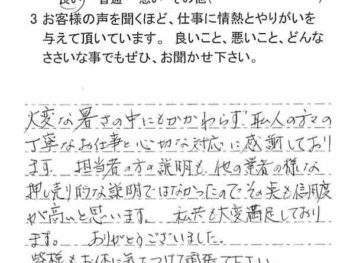 良い 普通 悪い その他(
3 お客様の声を聞くほど、仕事に情熱とやりがいを
与えて頂いています。良いこと、悪いこと、どんな
ささいな事でもぜひ、お聞かせ下さい。
大変な暑さの中にもかかわらず 職人の方々の
丁寧なお仕事と心切な対応に感謝しており
ます。担当者の方の説明も、他の業者の様な
押し売り的な説明ではなかったので、その点も信用度
が高いと思います。私共も大変満足しており
ます。ありがとうございました。
皆様もお体に気をつけて頑張って下さい